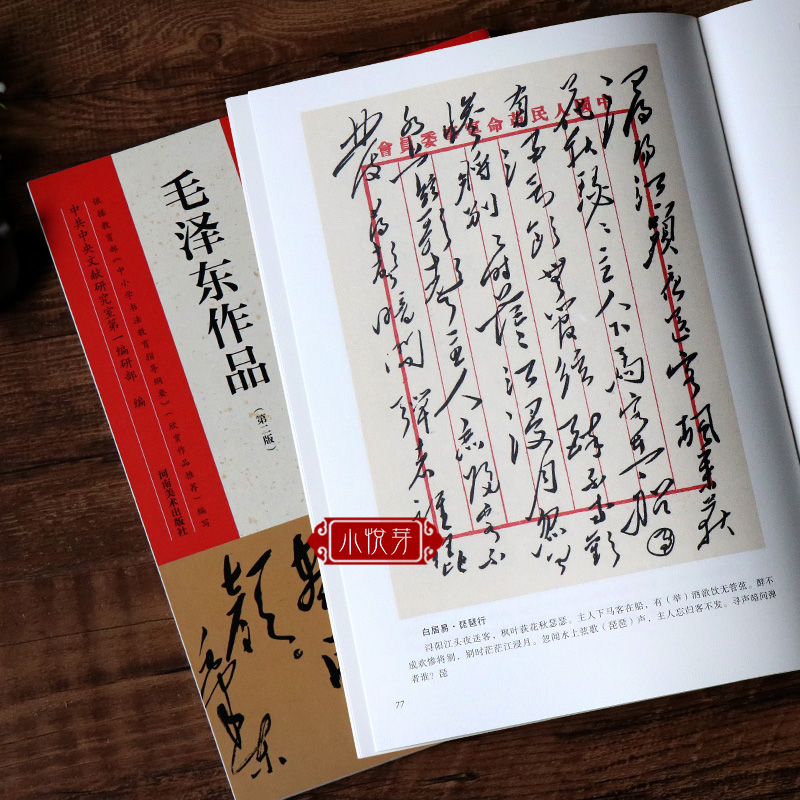 毛泽东作品
(第二版)
依据教育部《中小学书法教育指导纲要》(欣赏作品推荐)编写
中共中央文献研究室第一编研部 编
河南美术出版社
中國人民革命軍事委員會
浔阳江头夜送客枫叶荻
花秋瑟〻主人下马客在船
有酒欲饮无管弦醉不成欢
惨将别〻时茫〻江浸月忽闻
水上弦歌声主人忘归客不
发寻声暗问弹者谁琵
小悦芽
白居易·琵琶行
浔阳江头夜送客,枫叶荻花秋瑟瑟。主人下马客在船,有(举)酒欲饮无管弦。醉不
成欢惨将别,别时茫茫江浸月。忽闻水上弦歌(琵琶)声,主人忘归客不发。寻声暗问弹
者谁?琵
77